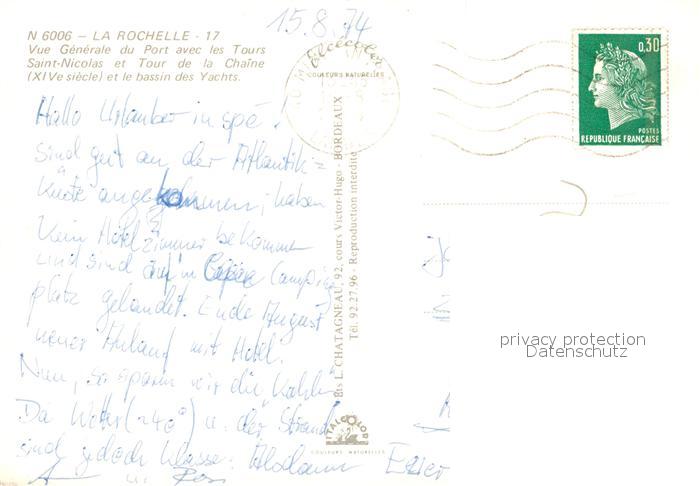 15.8.74
N 6006 - LA ROCHELLE - 17
Vue Générale du Port avec les Tours
Saint-Nicolas et Tour de la Chaîne
(XIVe siècle) et le bassin des Yachts.
Hallo Urlauber in spe!
Sind gut an der Atlantik=
küste angekommen, haben
kein Hotelzimmer bekommen
und sind auf'm Camping
platz gelandet. Ende August
neuer Anlauf mit Hotel.
Nun, so sparen wir die Kohlen
Da Wetter (~40°) u. der Strand
sind jedoch Klasse. Also dann
u.
COULEURS NATURELLES
Ets L. CHATAGNEAU, 92, cours Victor-Hugo - BORDEAUX
Tél. 92.27-96 - Reproduction interdite
ITALCOLOR
COULEURS NATURELLES
0,30
POSTES
REPUBLIQUE FRANÇAISE
privacy protection
Datenschutz